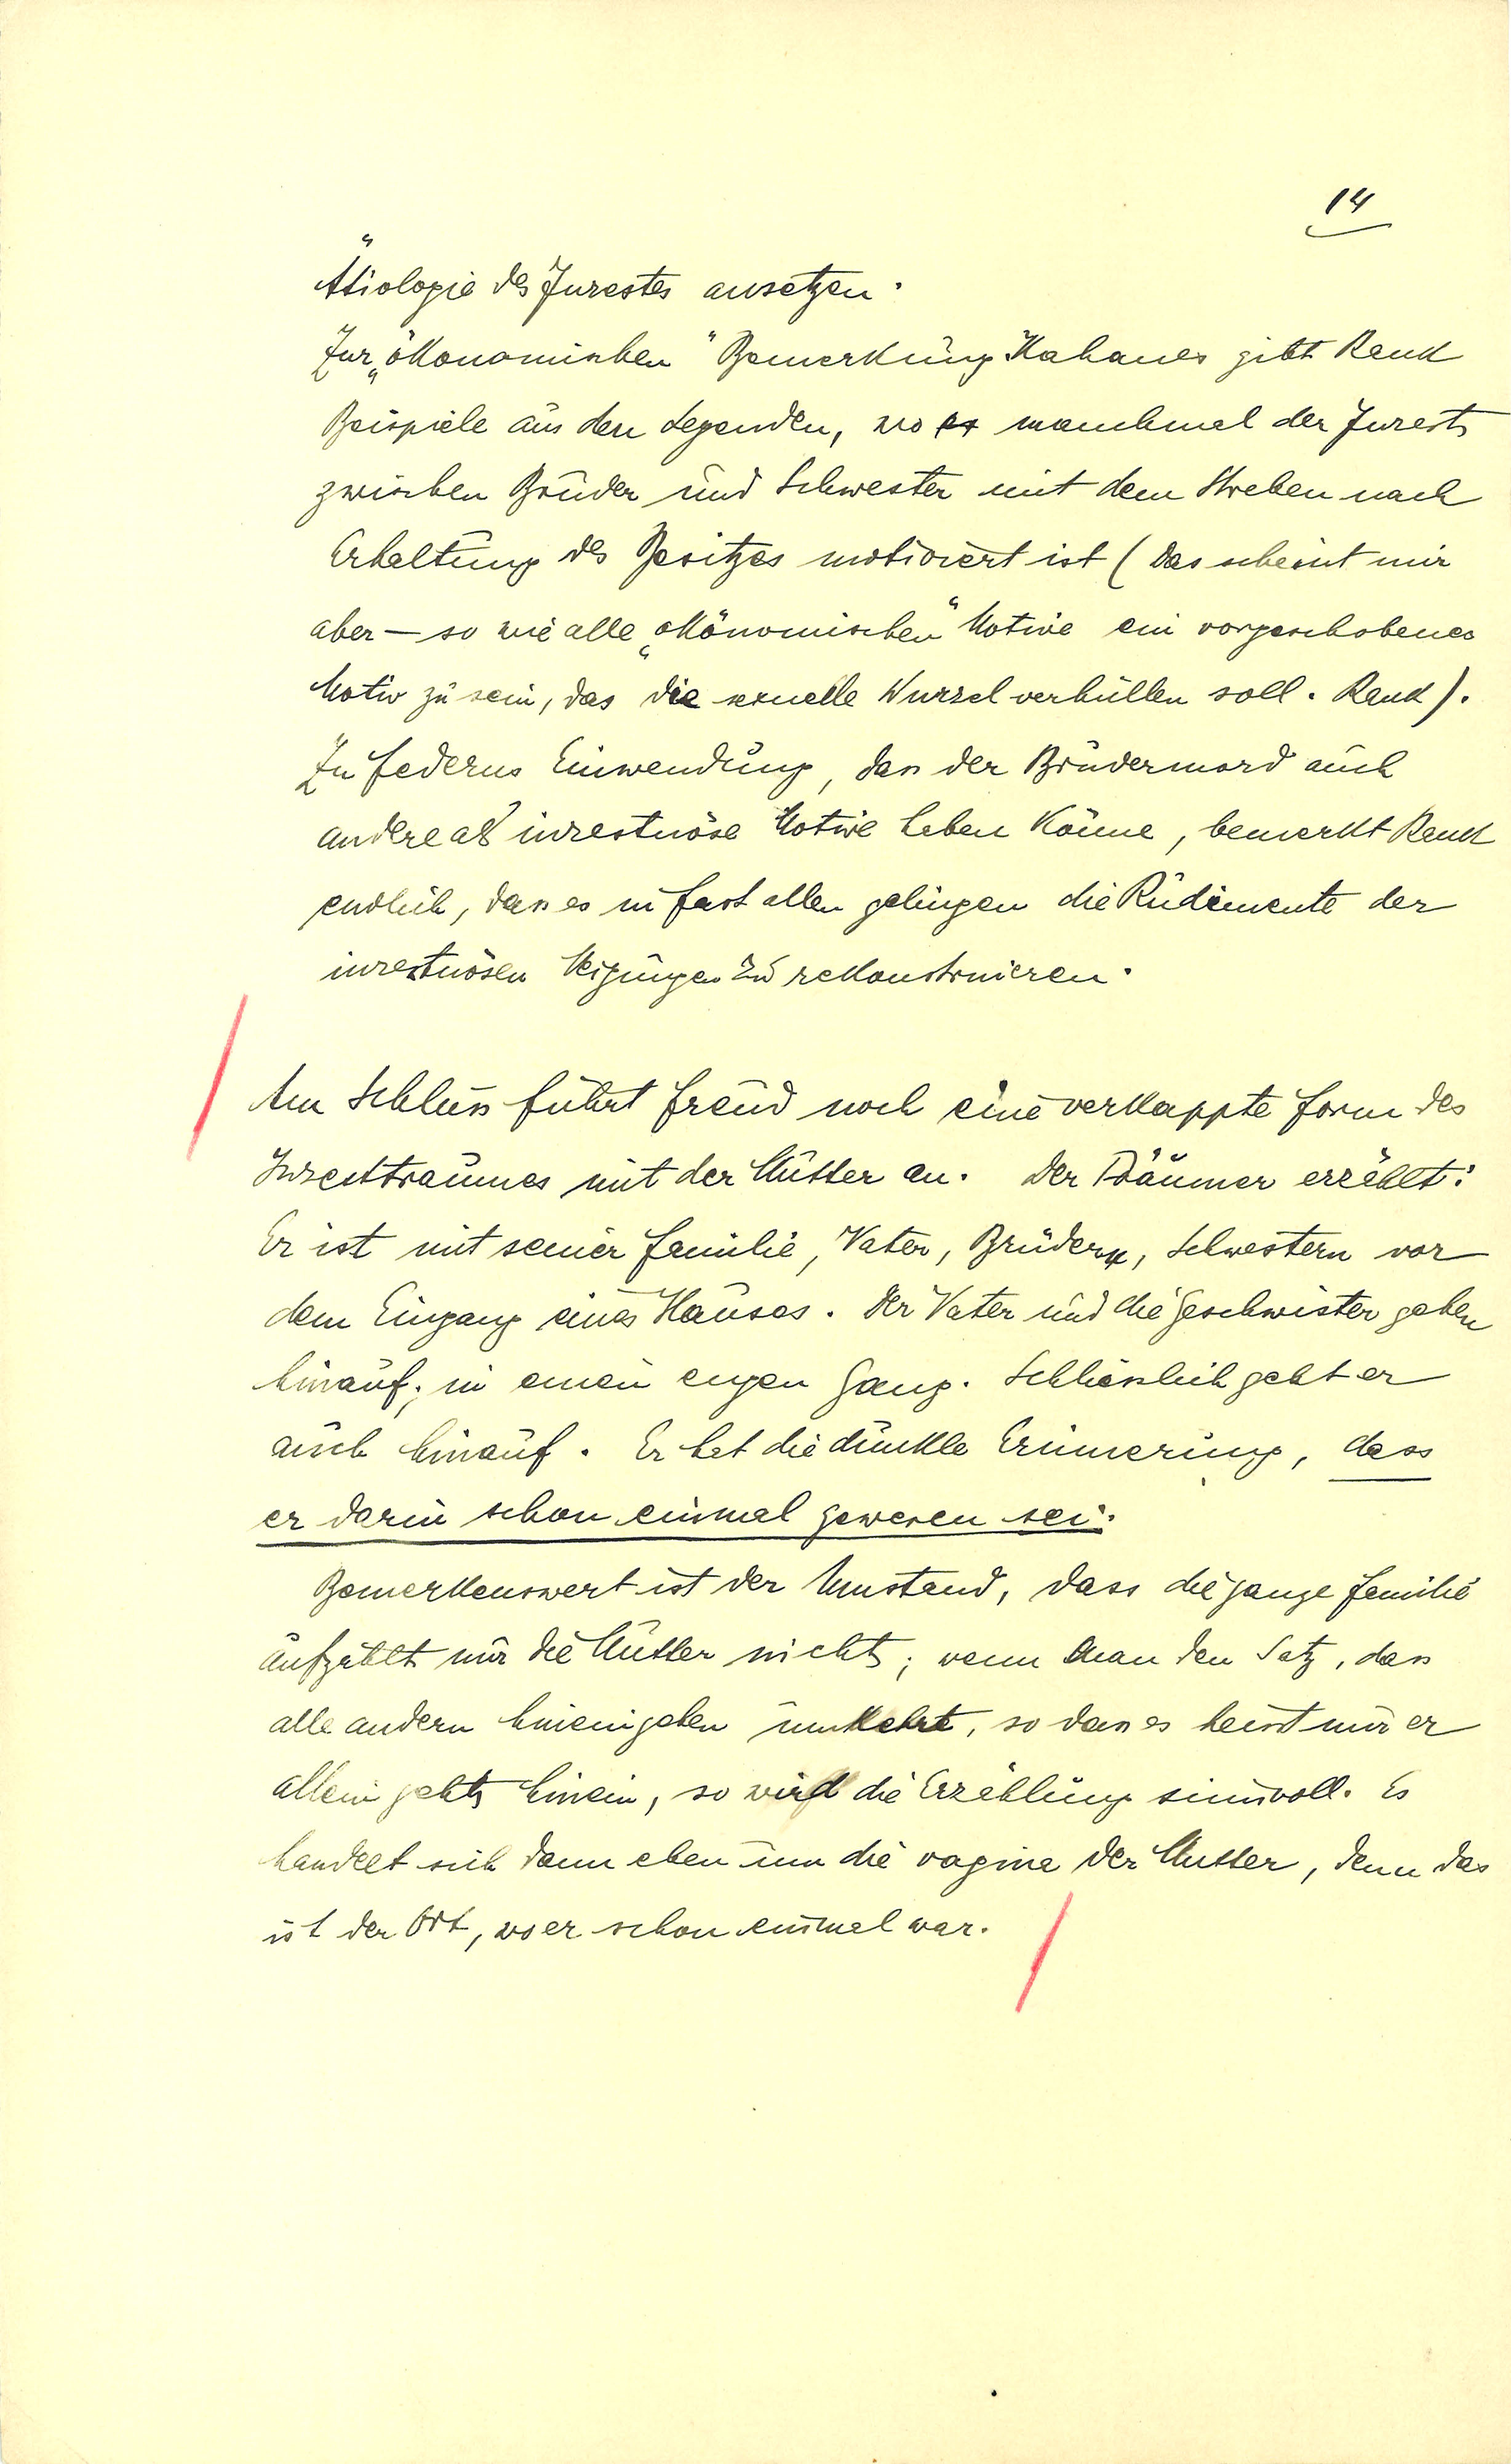 14
Ätiologie des Inzestes ansetzen.
Zur „ökonomischen“ Bemerkung Kahanes gibt Rank
Beispiele aus den Legenden, wo manchmal der Inzest
zwischen Bruder und Schwester mit dem Streben nach
Erhaltung des Besitzes motiviert ist (das scheint mir
aber — so wie alle „ökonomischen“ Motive ein vorgeschobenes
Motiv zu sein, das die sexuelle Wurzel verhüllen soll. Rank).
Zu Federns Einwendung, dass der Brudermord auch
andere als inzestuöse Motive haben könne, bemerkt Rank
endlich, dass es in fast allen gelingen die Rudimente der
inzestuösen Neigungen zu rekonstruieren.
Am Schluss führt Freud noch eine verkappte Form des
Inzesttraumes mit der Mutter an. Der Träumer erzählt:
Er ist mit seiner Familie, Vater, Brüder, Schwestern vor
dem Eingang eines Hauses. Der Vater und die Geschwister gehen
hinauf; in einen engen Gang. Schliesslich geht er
auch hinauf. Er hat die dunkle Erinnerung, dass
er darin schon einmal gewesen sei.
Bemerkenswert ist der Umstand, dass die ganze Familie
aufzählt nur die Mutter nicht; wenn man den Satz, dass
alle andern hineingehen umkehrt, so dass es heisst nur er
allein geht hinein, so wird die Erzählung sinnvoll. Es
handelt sich dann eben um die vagina der Mutter, denn das
ist der Ort, wo er schon einmal war.